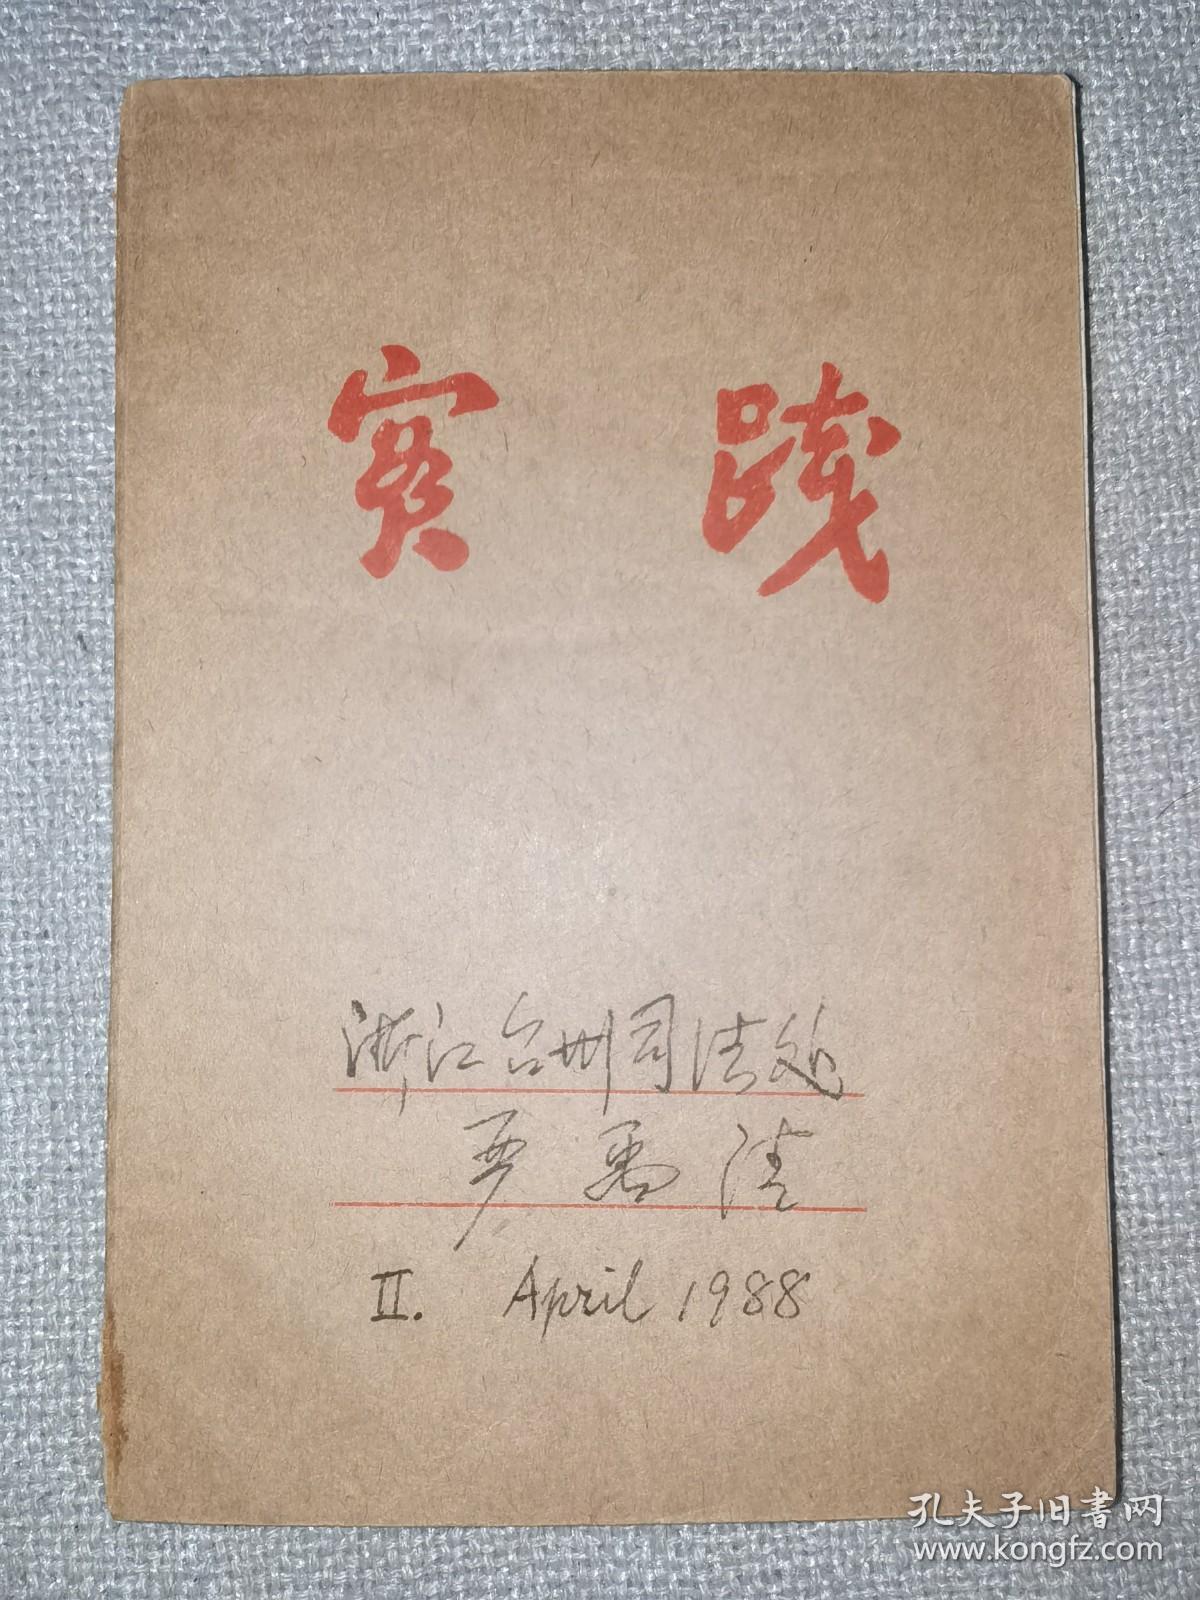 实践
浙江台州司法处
严禹法
II. April 1988
孔夫子旧书网
www.kongfz.com